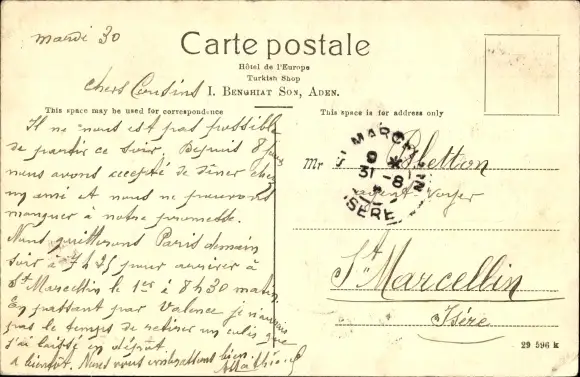 mardi 30
Carte postale
Hôtel de l'Europe
Turkish Shop
I. BENGHIAT SON, ADEN.
chers Cousins
This space may be used for correspondence
Il ne nous est pas possible
de partir ce soir. Depuis 8 jours
nous avons accepté de dîner chez
un ami et nous ne pouvons
manquer à notre promesse.
Nous quitterons Paris demain
soir à 7h25 pour arriver à
St Marcellin le 1er à 8h30 matin.
En passant par Valence je n'aurais
pas le temps de retirer un colis que
j'ai laissé en dépôt
a bientôt. Nous vous embrassons bien.
This space is for address only
Mr
agent-voyer
St Marcellin
Isère
ST MARCELLIN
9
31-8
ISÈRE
29 596 k